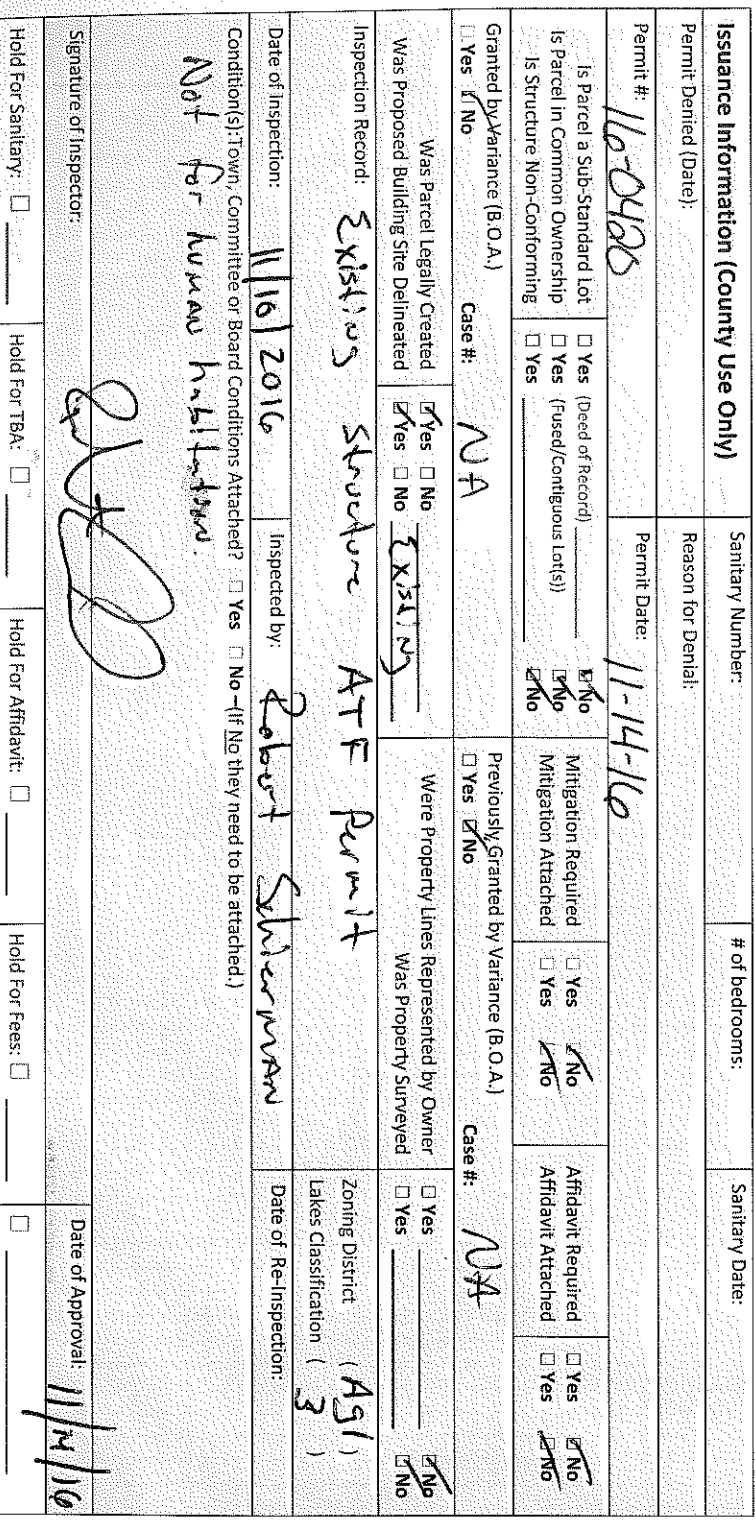 Issuance Information (County Use Only)
Sanitary Number:
# of bedrooms:
Sanitary Date:
Permit Denied (Date):
Reason for Denial:
Permit #: 16-0420
Permit Date: 11-14-16
Is Parcel a Sub-Standard Lot ☐ Yes (Deed of Record) ☑ No
Is Parcel in Common Ownership ☐ Yes (Fused/Contiguous Lot(s)) ☑ No
Is Structure Non-Conforming ☐ Yes ☑ No
Mitigation Required ☐ Yes ☑ No
Mitigation Attached ☐ Yes ☑ No
Affidavit Required ☐ Yes ☑ No
Affidavit Attached ☐ Yes ☑ No
Granted by Variance (B.O.A.)
☐ Yes ☑ No Case #: NA
Previously Granted by Variance (B.O.A.)
☐ Yes ☑ No Case #: NA
Was Parcel Legally Created ☑ Yes ☐ No
Was Proposed Building Site Delineated ☑ Yes ☐ No Existing
Were Property Lines Represented by Owner ☐ Yes ☑ No
Was Property Surveyed ☐ Yes ☑ No
Inspection Record: Existing Structure ATF Permit
Zoning District (Ag1)
Lakes Classification ( 3 )
Date of Inspection: 11/10/2016
Inspected by: Robert Schierman
Date of Re-Inspection:
Condition(s): Town, Committee or Board Conditions Attached? ☐ Yes ☐ No –(If No they need to be attached.)
Not for human habitation.
Signature of Inspector:
Date of Approval: 11/14/16
Hold For Sanitary: ☐
Hold For TBA: ☐
Hold For Affidavit: ☐
Hold For Fees: ☐
☐